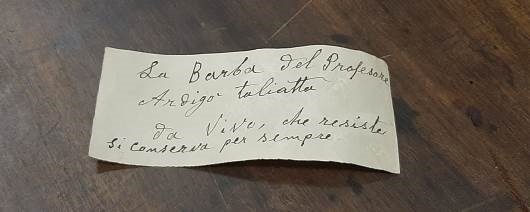 La Barba del Profesore
Ardigò taliatta
da Vivo, che resiste
Si conserva per sempre